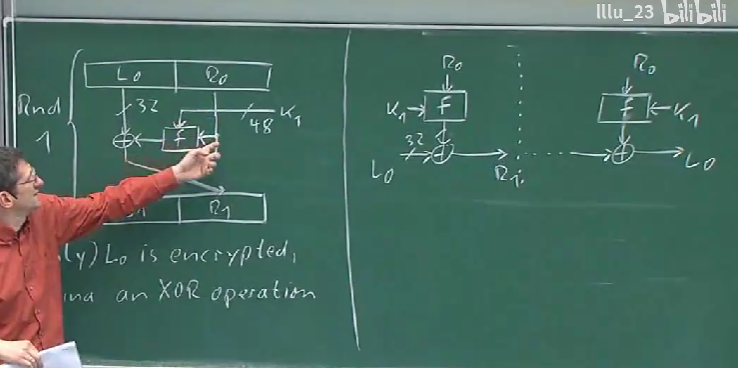 Illu_23 bilibili
L0 R0
Rnd 1
32
48
K1
f
R1
(y) L0 is encrypted,
an XOR operation
R0
K1
f
32
L0
R1
R0
f
K1
L0